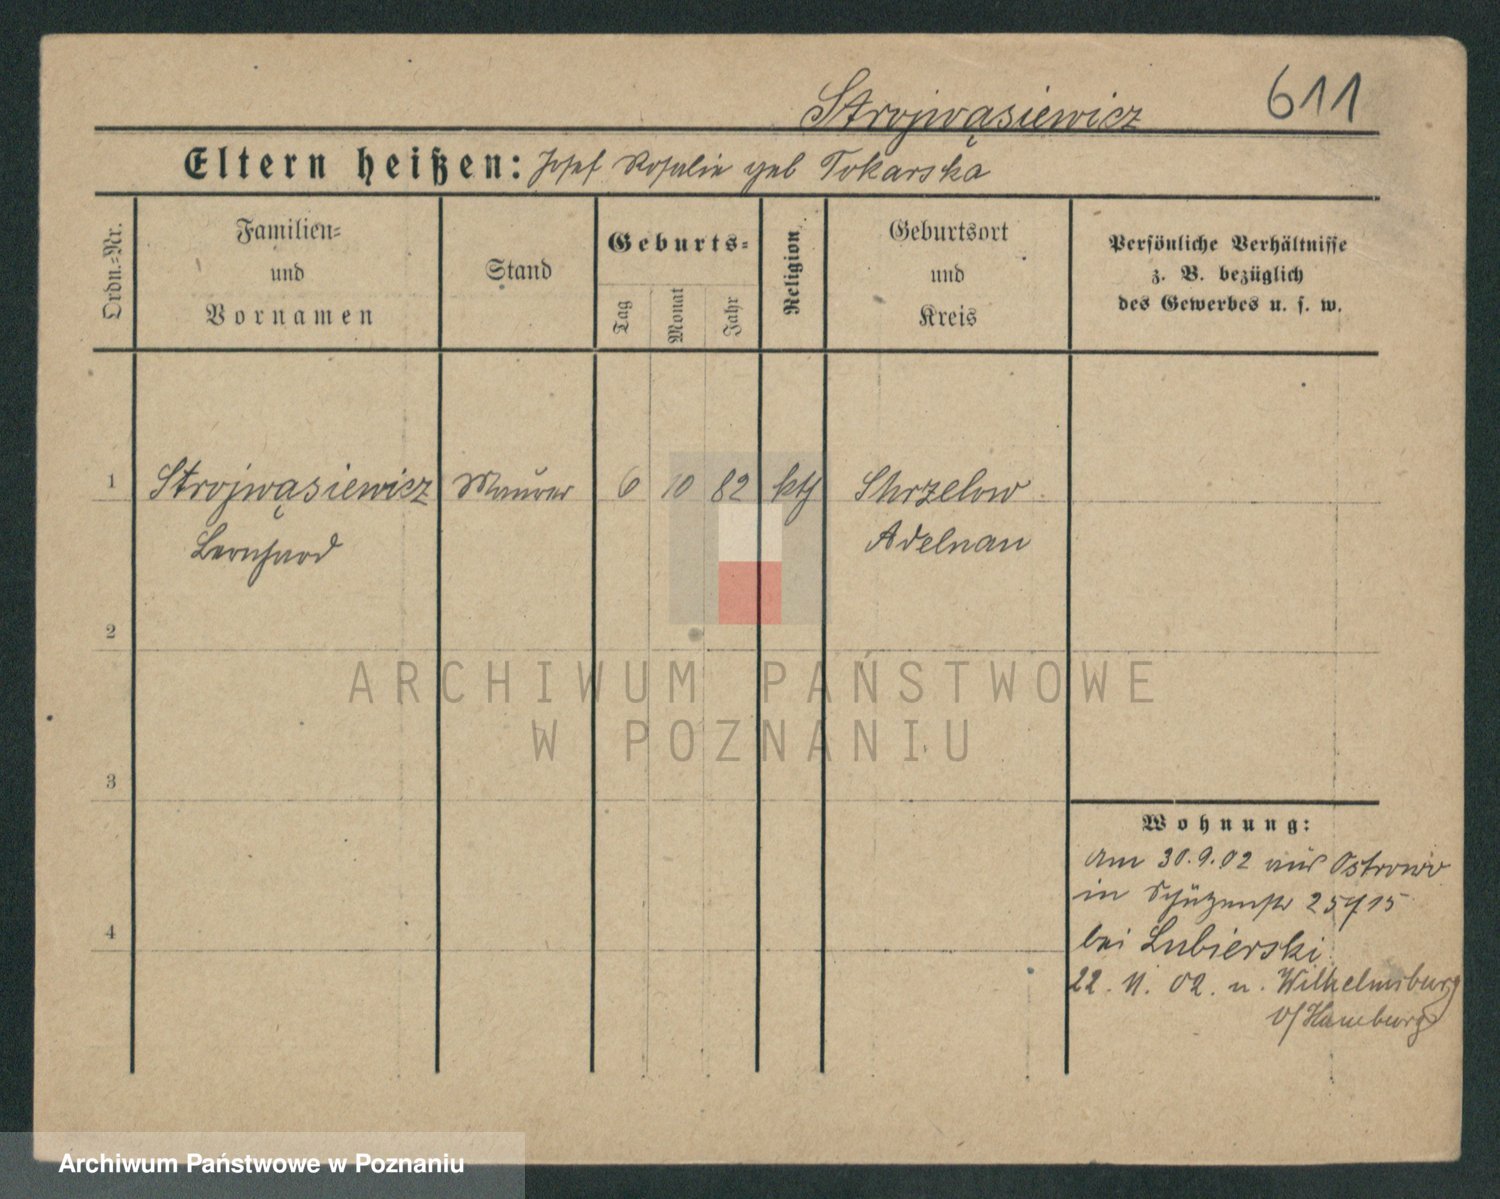 Strojwąsiewicz
611
Eltern heißen: Josef Rosalie geb Tokarska
Ordn.=Nr.
Familien=
und
Vornamen
Stand
Geburts=
Tag
Monat
Jahr
Religion
Geburtsort
und
Kreis
Persönliche Verhältnisse
z. B. bezüglich
des Gewerbes u. s. w.
1
Strojwąsiewicz
Bernhard
Maurer
6
10
82
kth
Skrzelow
Adelnau
2
3
4
Wohnung:
am 30.9.02 aus Ostrowo
in Schützenstr 25
bei Lubierski
22. 11. 02. n. Wilhelmsburg
b/Hamburg
ARCHIWUM PAŃSTWOWE
W POZNANIU
Archiwum Państwowe w Poznaniu